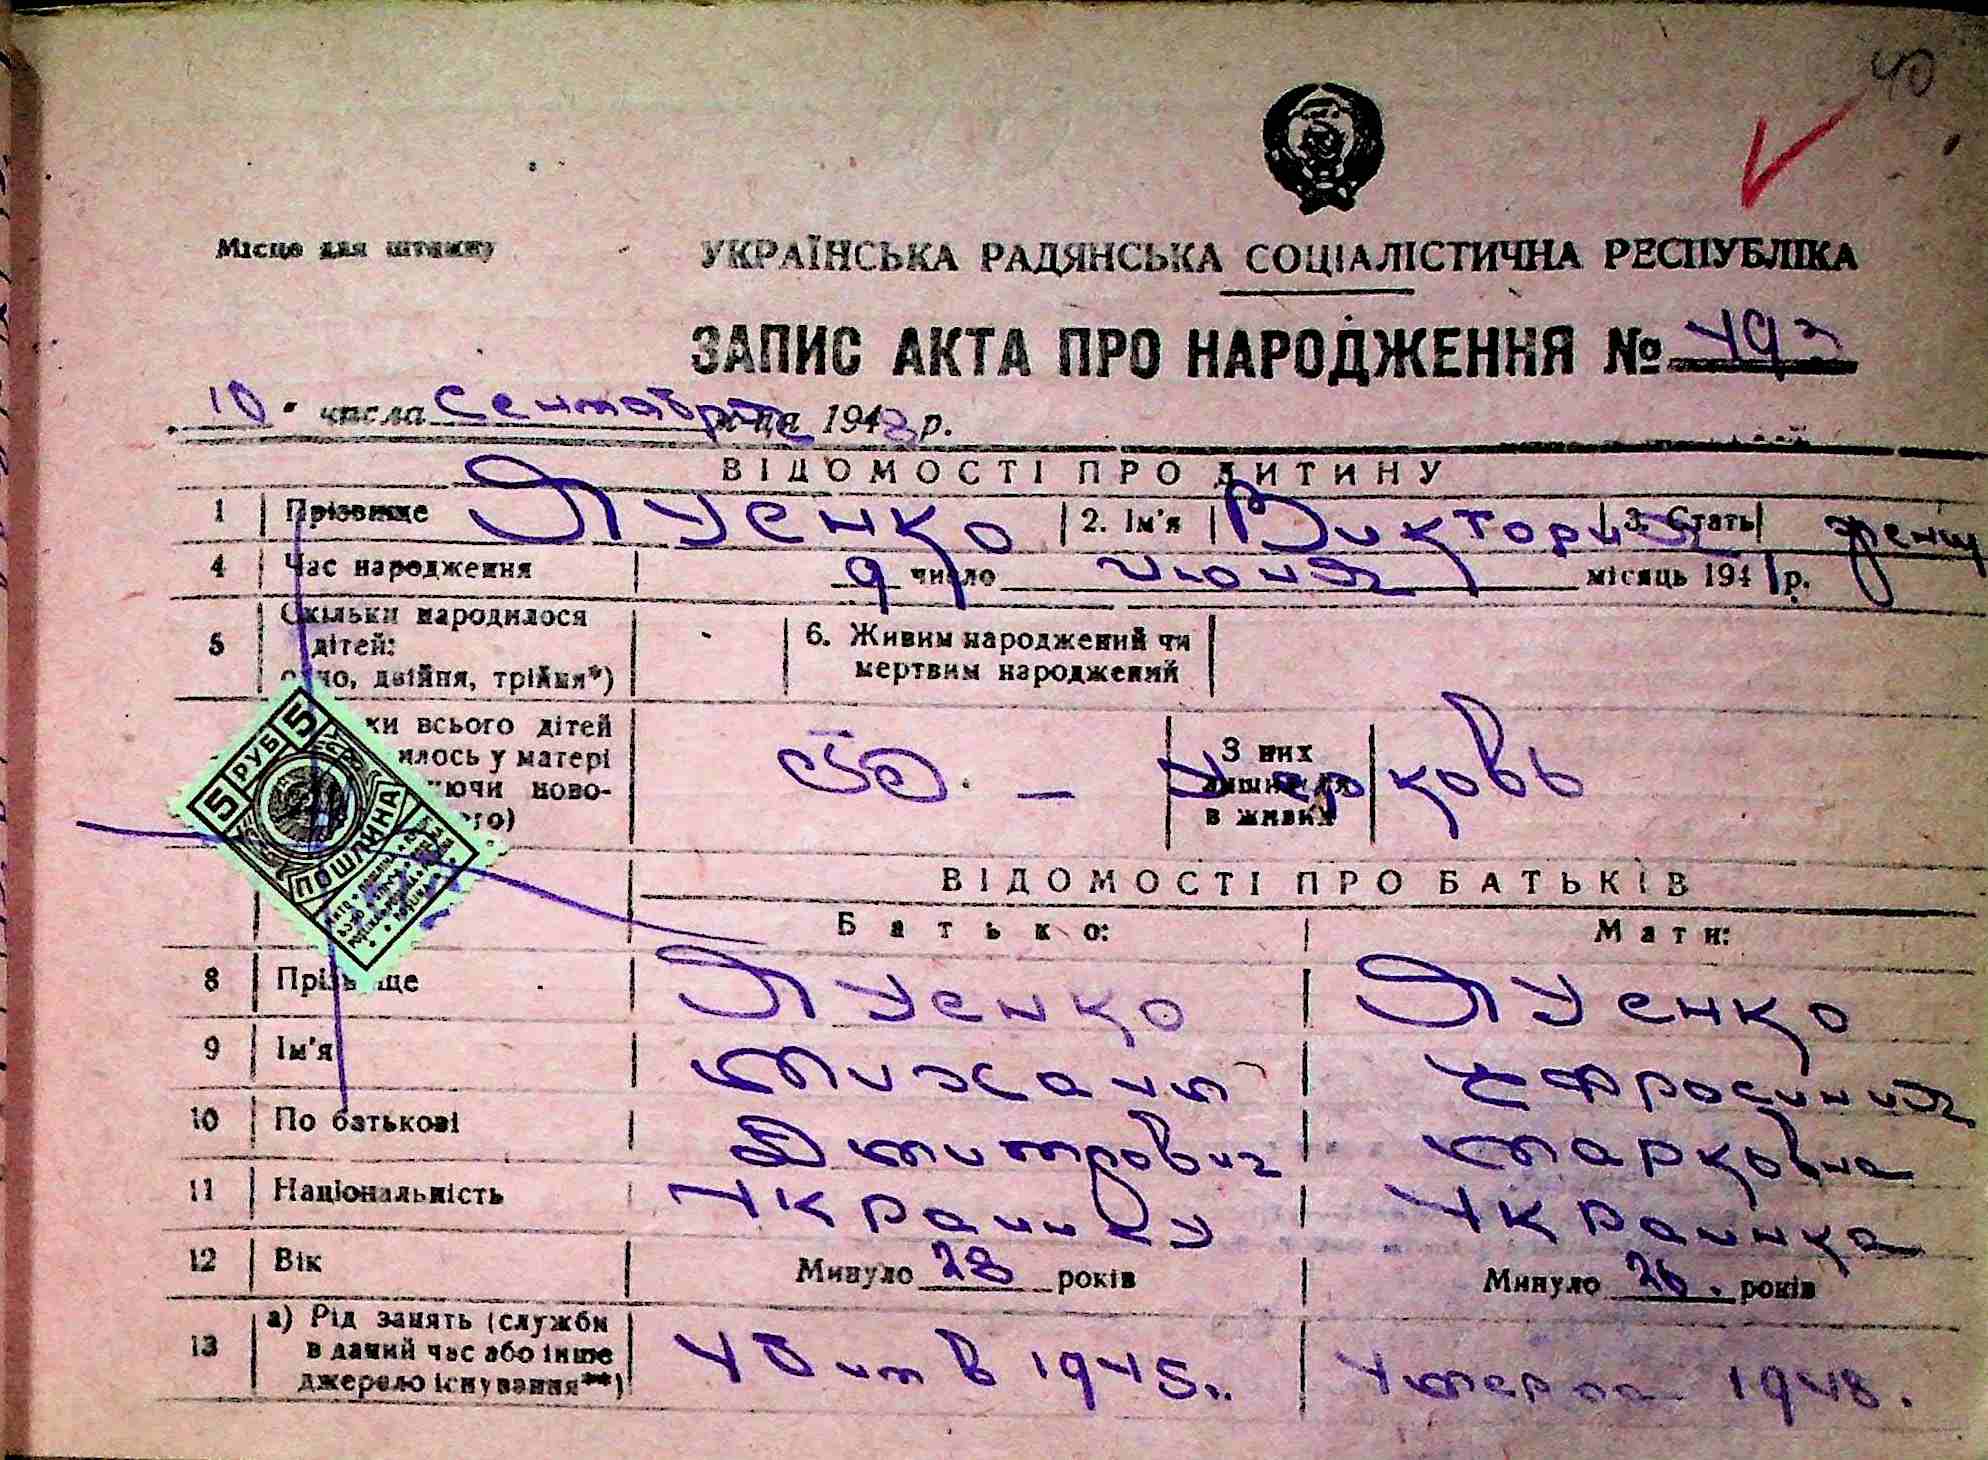 40
Місце для штампу
УКРАЇНСЬКА РАДЯНСЬКА СОЦІАЛІСТИЧНА РЕСПУБЛІКА
ЗАПИС АКТА ПРО НАРОДЖЕННЯ №
10 числа сентября місяця 1948 р.
ВІДОМОСТІ ПРО ДИТИНУ
1 Прізвище Луенко 2. Ім'я Виктория 3. Стать женщ
4 Час народження 9 число июня місяць 1941 р.
5 Скільки народилося дітей: одно, двійня, трійня*)
6. Живим народжений чи мертвим народжений
ки всього дітей
илось у матері
ючи ново-
ого)
с. - Черковь
З них лишилися в живих
5 РУБ 5
ПОШЛИНА
ВІДОМОСТІ ПРО БАТЬКІВ
Батько: Мати:
8 Прізвище Луенко Луенко
9 Ім'я Михаил Ефросиния
10 По батькові Дмитрович Марковна
11 Національність Украинец Украинка
12 Вік Минуло 28 років Минуло 26. років
13 а) Рід занять (служби в даний час або інше джерело існування**) Убит в 1945г. Умерла 1948.